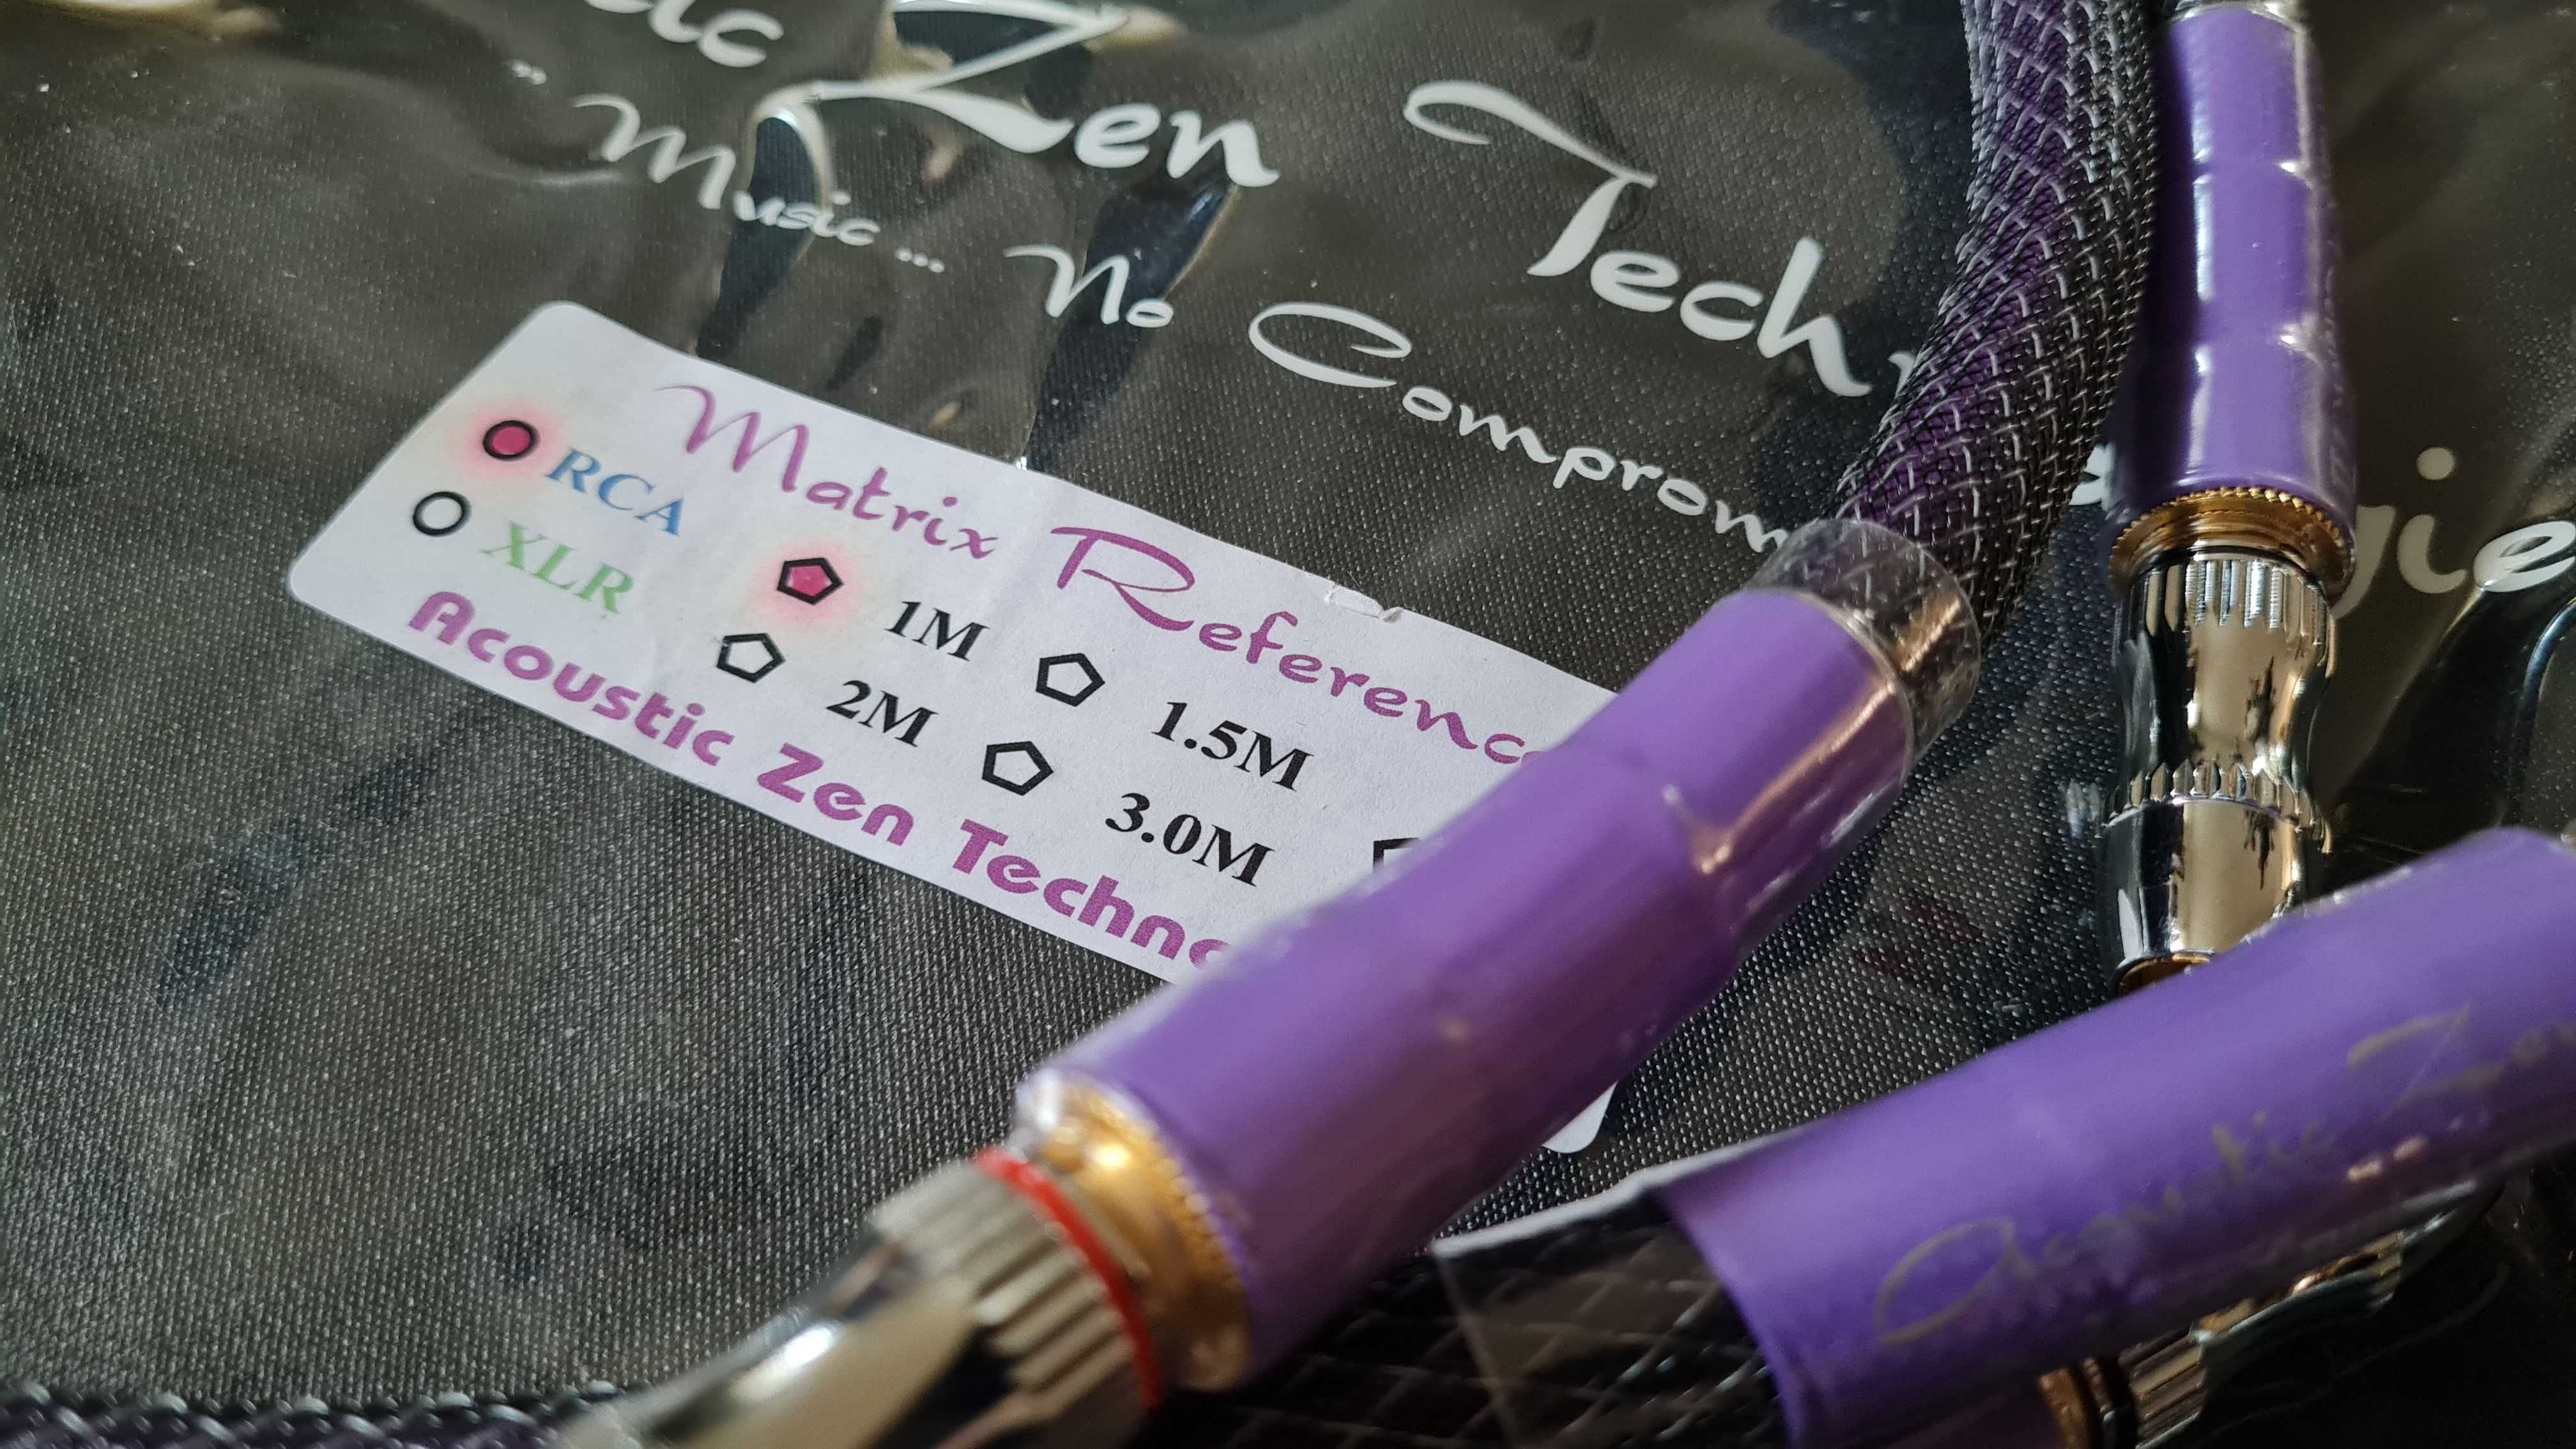 Zen Tech
"Music... No Comprom
Matrix Reference
RCA
XLR
1M
1.5M
2M
3.0M
Acoustic Zen Techno
Acoustic Zen